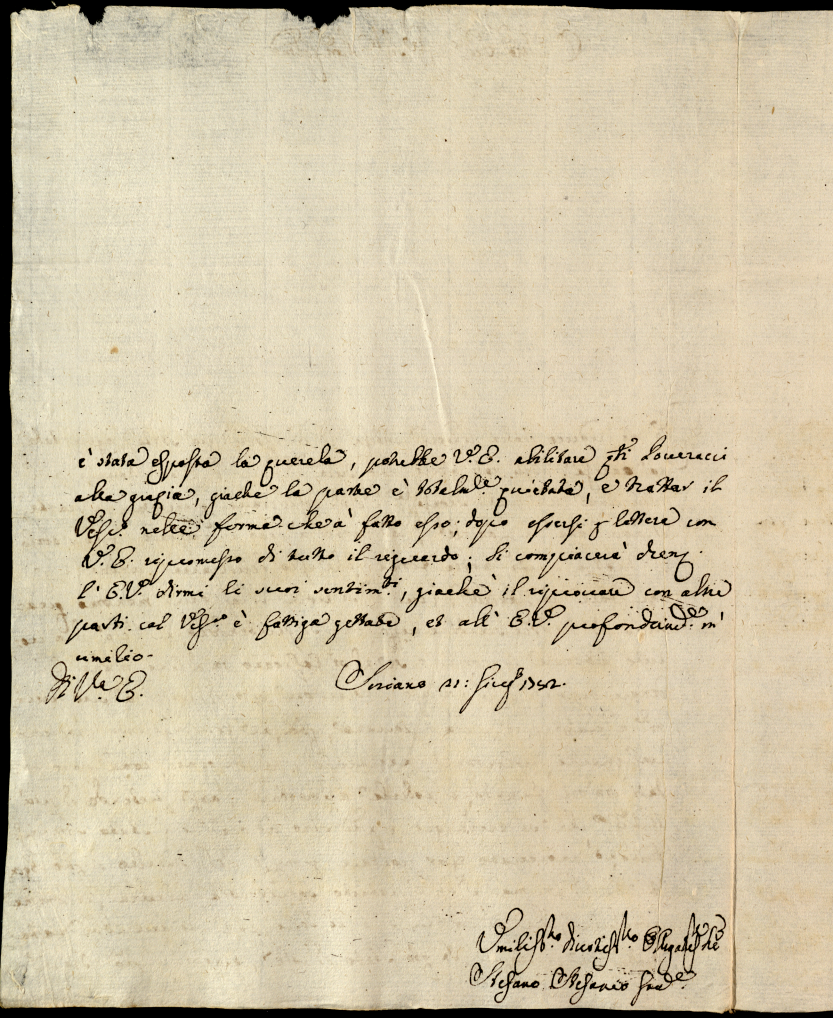 è stata esposta la querela, potrebbe V.E. abilitare gli Poveracci
alla grazia, giache la parte è totalm.te quietata, e trattar il
Vesc.o nella forma che à fatto esso; dopo essersi p lettere con
V.E. ripromesso di tutto il riguardo; si compiacerà
l'E.V. dirmi li suoi sentim.ti, giache il con altre
parti col Vesc.o è fattiga gettata, et all'E.V. profondam.te m'
umilio-
Di V.a E. Soriano 21: Giug.o 1752.
Umiliss.mo Divotiss.mo Obligatiss.o
Stefano Stefanio